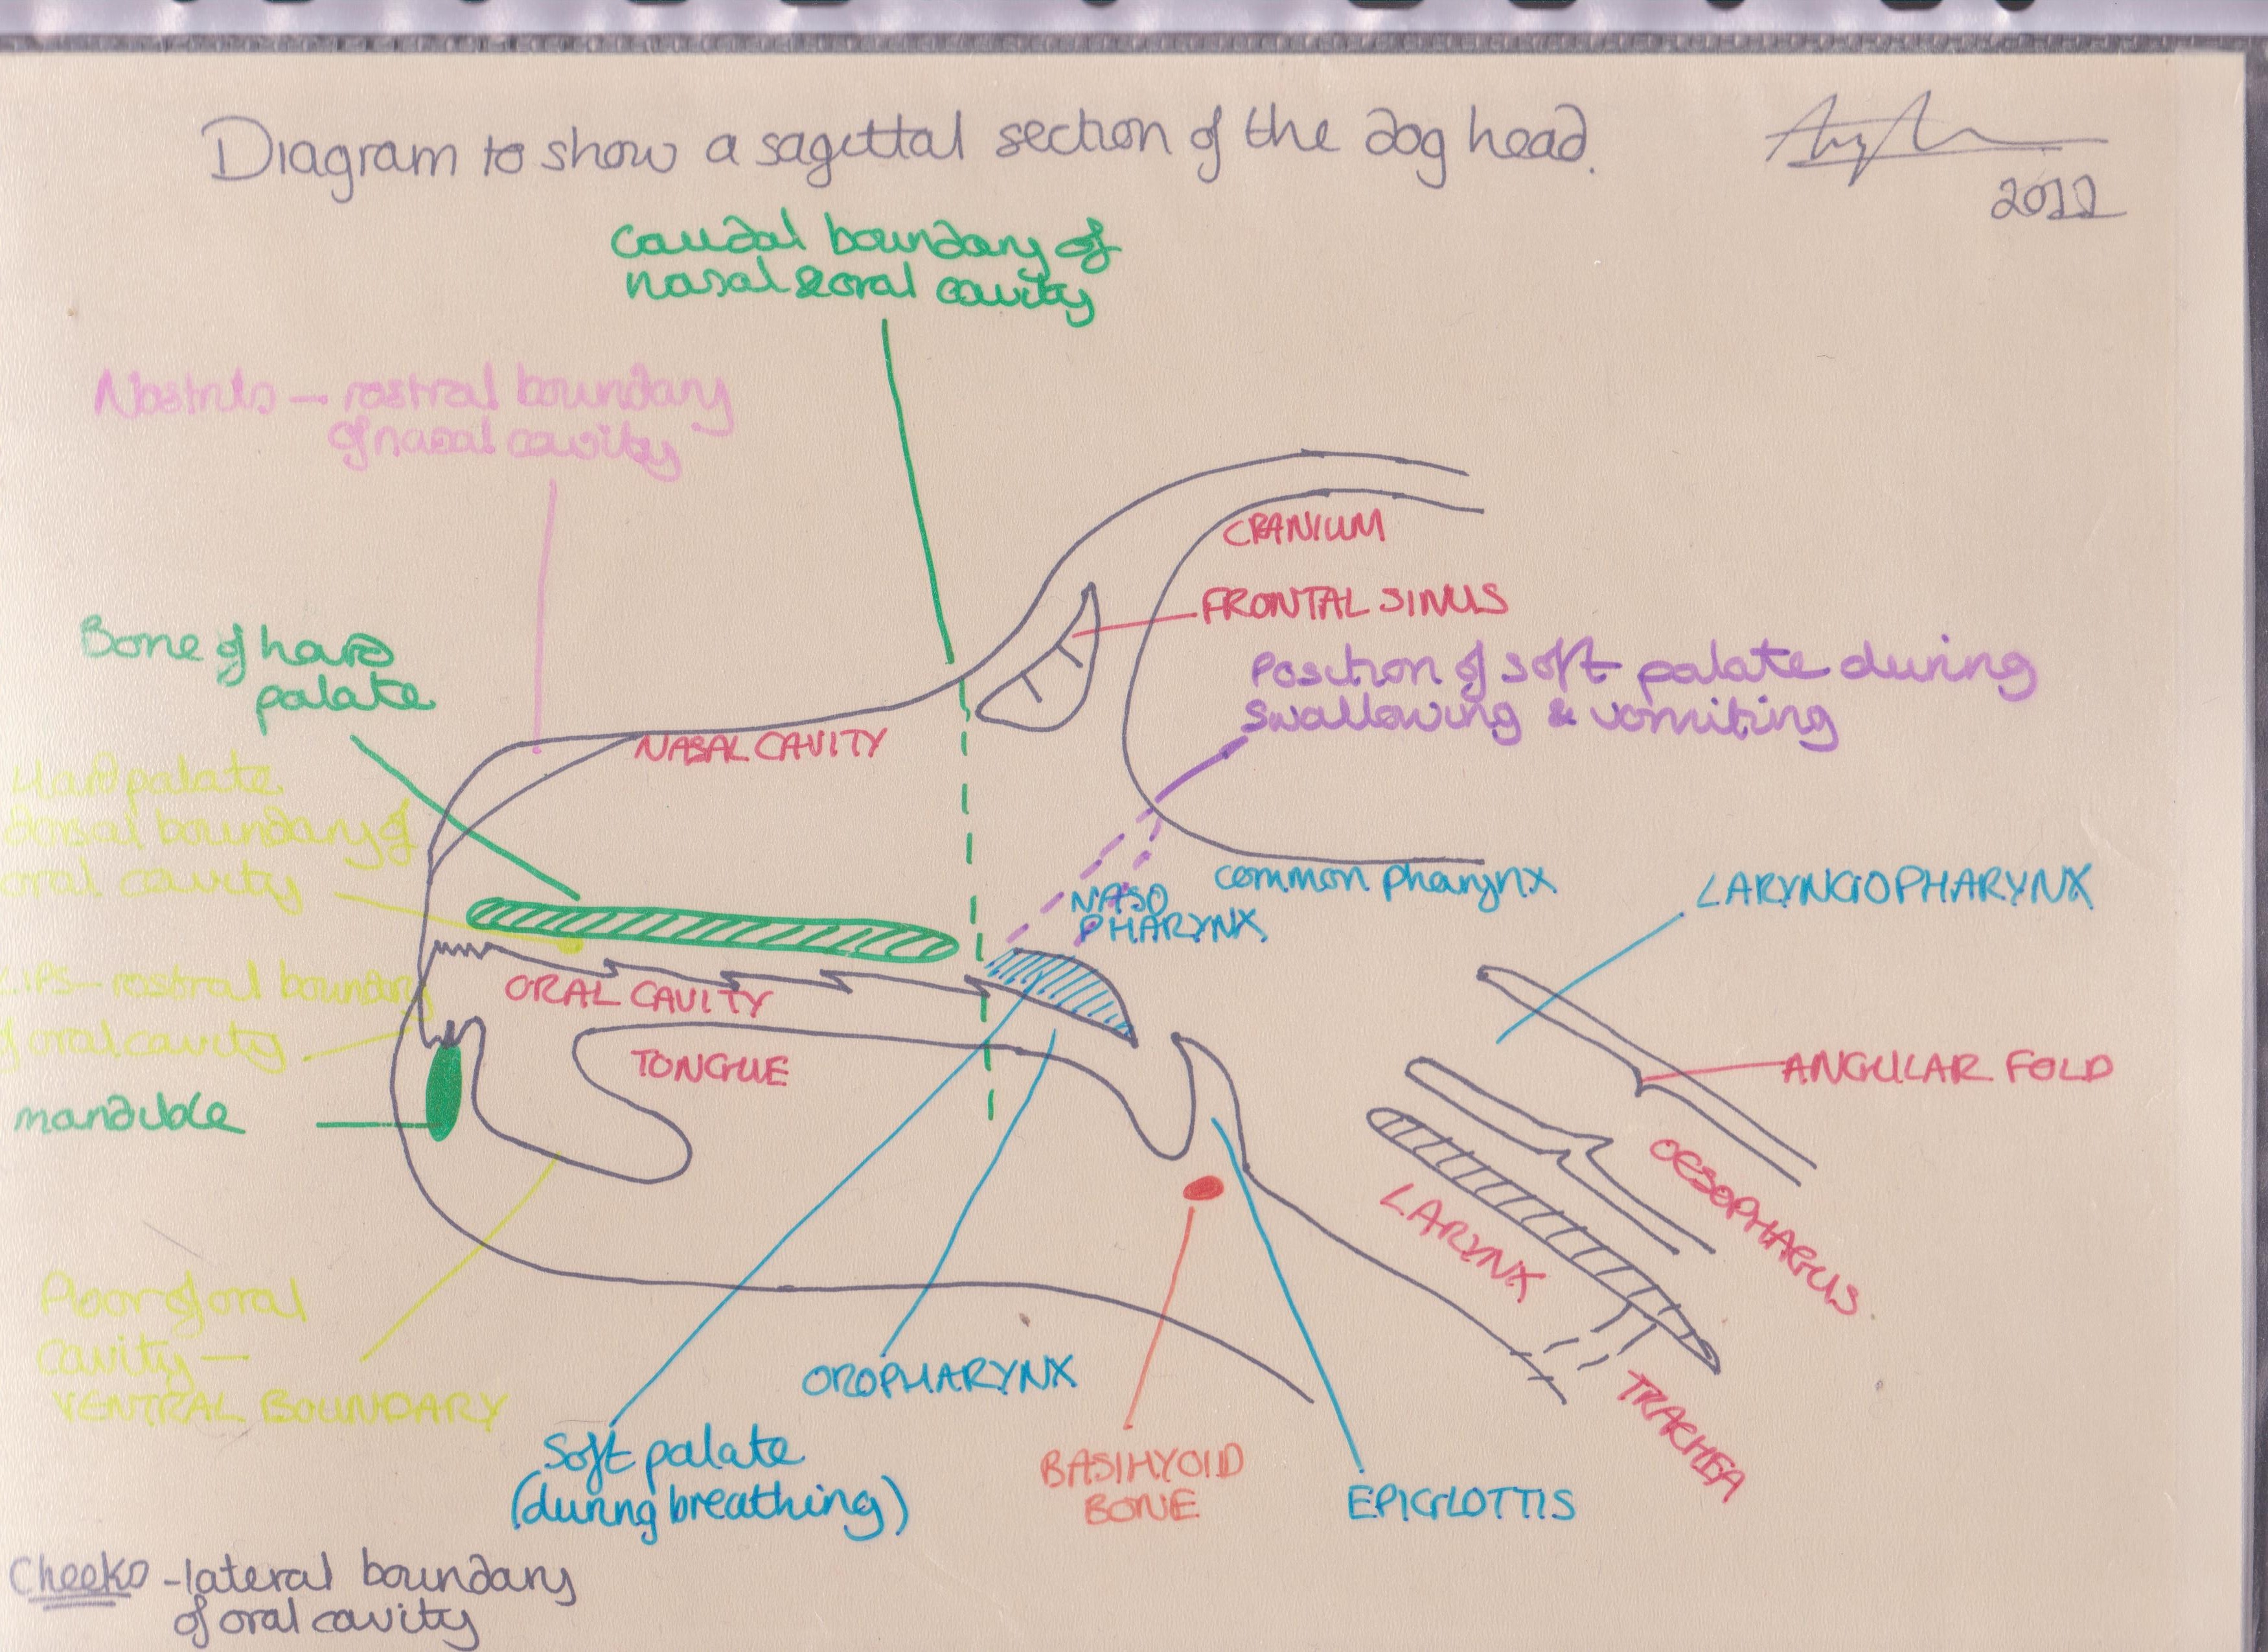 Diagram to show a sagittal section of the dog head.
2011
Caudal boundary of
nasal & oral cavity
Nostrils – rostral boundary
of nasal cavity
CRANIUM
FRONTAL SINUS
Bone of hard
palate
Position of soft palate during
swallowing & vomiting
NASAL CAVITY
Hard palate
dorsal boundary of
oral cavity
common pharynx
LARYNGOPHARYNX
NASO
PHARYNX
LIPS – rostral boundary
of oral cavity
ORAL CAVITY
TONGUE
ANGULAR FOLD
mandible
OESOPHAGUS
LARYNX
Floor of oral
cavity –
VENTRAL BOUNDARY
OROPHARYNX
TRACHEA
Soft palate
(during breathing)
BASIHYOID
BONE
EPIGLOTTIS
Cheeks – lateral boundary
of oral cavity